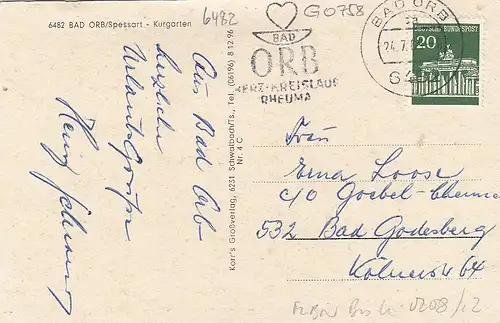 6482 BAD ORB/Spessart - Kurgarten
6482
G0758
BAD
ORB
HERZ-KREISLAUF
RHEUMA
BAD ORB
24.7.
DEUTSCHE BUNDESPOST
20
Aus Bad Orb
herzliche
Urlaubsgrüße
Korr's Großverlag, 6231 Schwalbach/Ts., Tel. (06196) 8 12 96
Nr. 4 C
Frau
Erna Loose
c/o Goebel-
532 Bad Godesberg
Kölnerstr 64